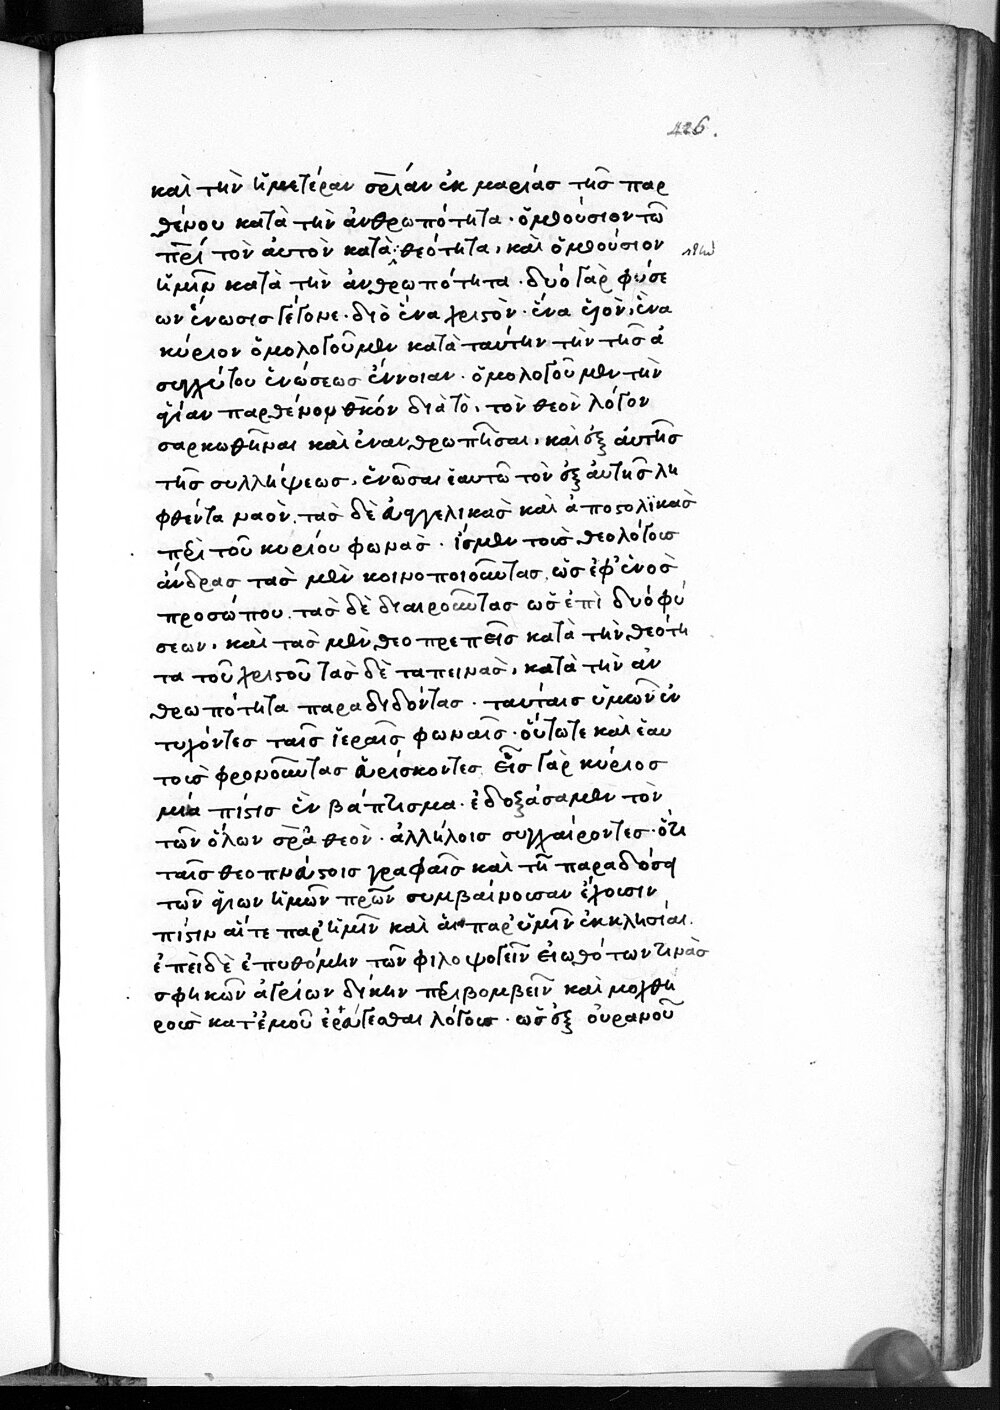 426.
καὶ τὴν ἡμετέραν σ̅ρίαν ἐκ μαρίας τῆς παρ
θένου κατὰ τὴν ἀνθρωπότητα · ὁμοούσιον τῶ
π̅ρι τὸν αὐτὸν κατὰ θεότητα, καὶ ὁμοούσιον
ἡμῖν κατὰ τὴν ἀνθρωπότητα · δύο γὰρ φύσε
ων ἕνωσις γέγονε · διὸ ἕνα χριστὸν · ἕνα υἱὸν, ἕνα
κύριον ὁμολογοῦμεν κατὰ ταύτην τὴν τῆς ἀ
συγχύτου ἑνώσεως ἔννοιαν · ὁμολογοῦμεν τὴν
ἁγίαν παρθένον θ̅κόν διὰ τὸ, τὸν θεὸν λόγον
σαρκωθῆναι καὶ ἐνανθρωπῆσαι, καὶ ἐξ αὐτῆς
τῆς συλλήψεως, ἑνῶσαι ἑαυτῶ τὸν ἐξ αὐτῆς λη
φθέντα ναὸν. τὰς δὲ ἀγγελικὰς καὶ ἀποστολικὰς
περὶ τοῦ κυρίου φωνὰς · ἴσμεν τοὺς θεολόγους
ἄνδρας τὰς μὲν κοινοποιοῦντας, ὡς ἐφ' ἑνὸς
προσώπου. τὰς δὲ διαιροῦντας ὡς ἐπὶ δύο φύ
σεων, καὶ τὰς μὲν θεοπρεπεῖς κατὰ τὴν θεότη
τα τοῦ χριστοῦ τὰς δὲ ταπεινὰς, κατὰ τὴν ἀν
θρωπότητα παραδιδόντας · ταύταις ὑμῶν ἐν
τυχόντες ταῖς ἱεραῖς φωναῖς · οὕτωτε καὶ ἑαυ
τοὺς φρονοῦντας εὑρίσκοντες εἷς γὰρ κύριος
μία πίστις ἓν βάπτισμα · ἐδοξάσαμεν τὸν
τῶν ὅλων σ̅ρα θεὸν · ἀλλήλοις συγχαίροντες · ὅτι
ταῖς θεοπνεύστοις γραφαῖς καὶ τῇ παραδόσει
τῶν ἁγίων ἡμῶν π̅ρων συμβαίνουσαν ἔχουσιν
πίστιν αἵ τε παρ' ἡμῖν καὶ αἱ παρ' ὑμῖν ἐκκλησίαι.
ἐπειδὲ ἐπυθόμην τῶν φιλοψογεῖν εἰωθότων τινὰς
σφηκῶν ἀγρίων δίκην περιβομβεῖν καὶ μοχθη
ροὺς κατ' ἐμοῦ ἐρεύγεσθαι λόγους · ὡς ἐξ οὐρανοῦ